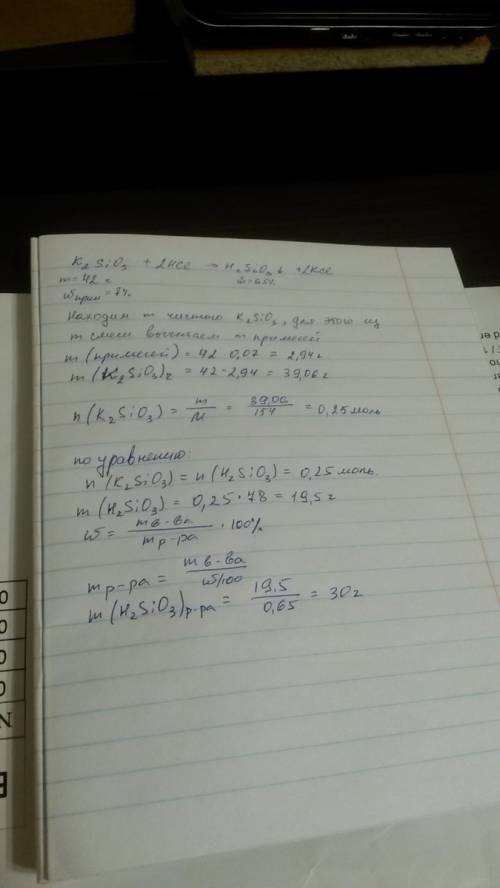 K₂SiO₃ + 2HCl → H₂SiO₃↓ + 2KCl
m = 42 г
ω прим = 7%
Находим m чистого K₂SiO₃, для этого из
m смеси вычитаем m примесей
m (примесей) = 42 · 0,07 = 2,94 г
m (K₂SiO₃) = 42 - 2,94 = 39,06 г
n (K₂SiO₃) = m/M = 39,06/154 = 0,25 моль
по уравнению:
n (K₂SiO₃) = n (H₂SiO₃) = 0,25 моль.
m (H₂SiO₃) = 0,25 * 78 = 19,5 г
ω = m в-ва/m р-ра · 100%
m р-ра = m в-ва/ω/100
m (H₂SiO₃) р-ра = 19,5/0,65 = 30 г